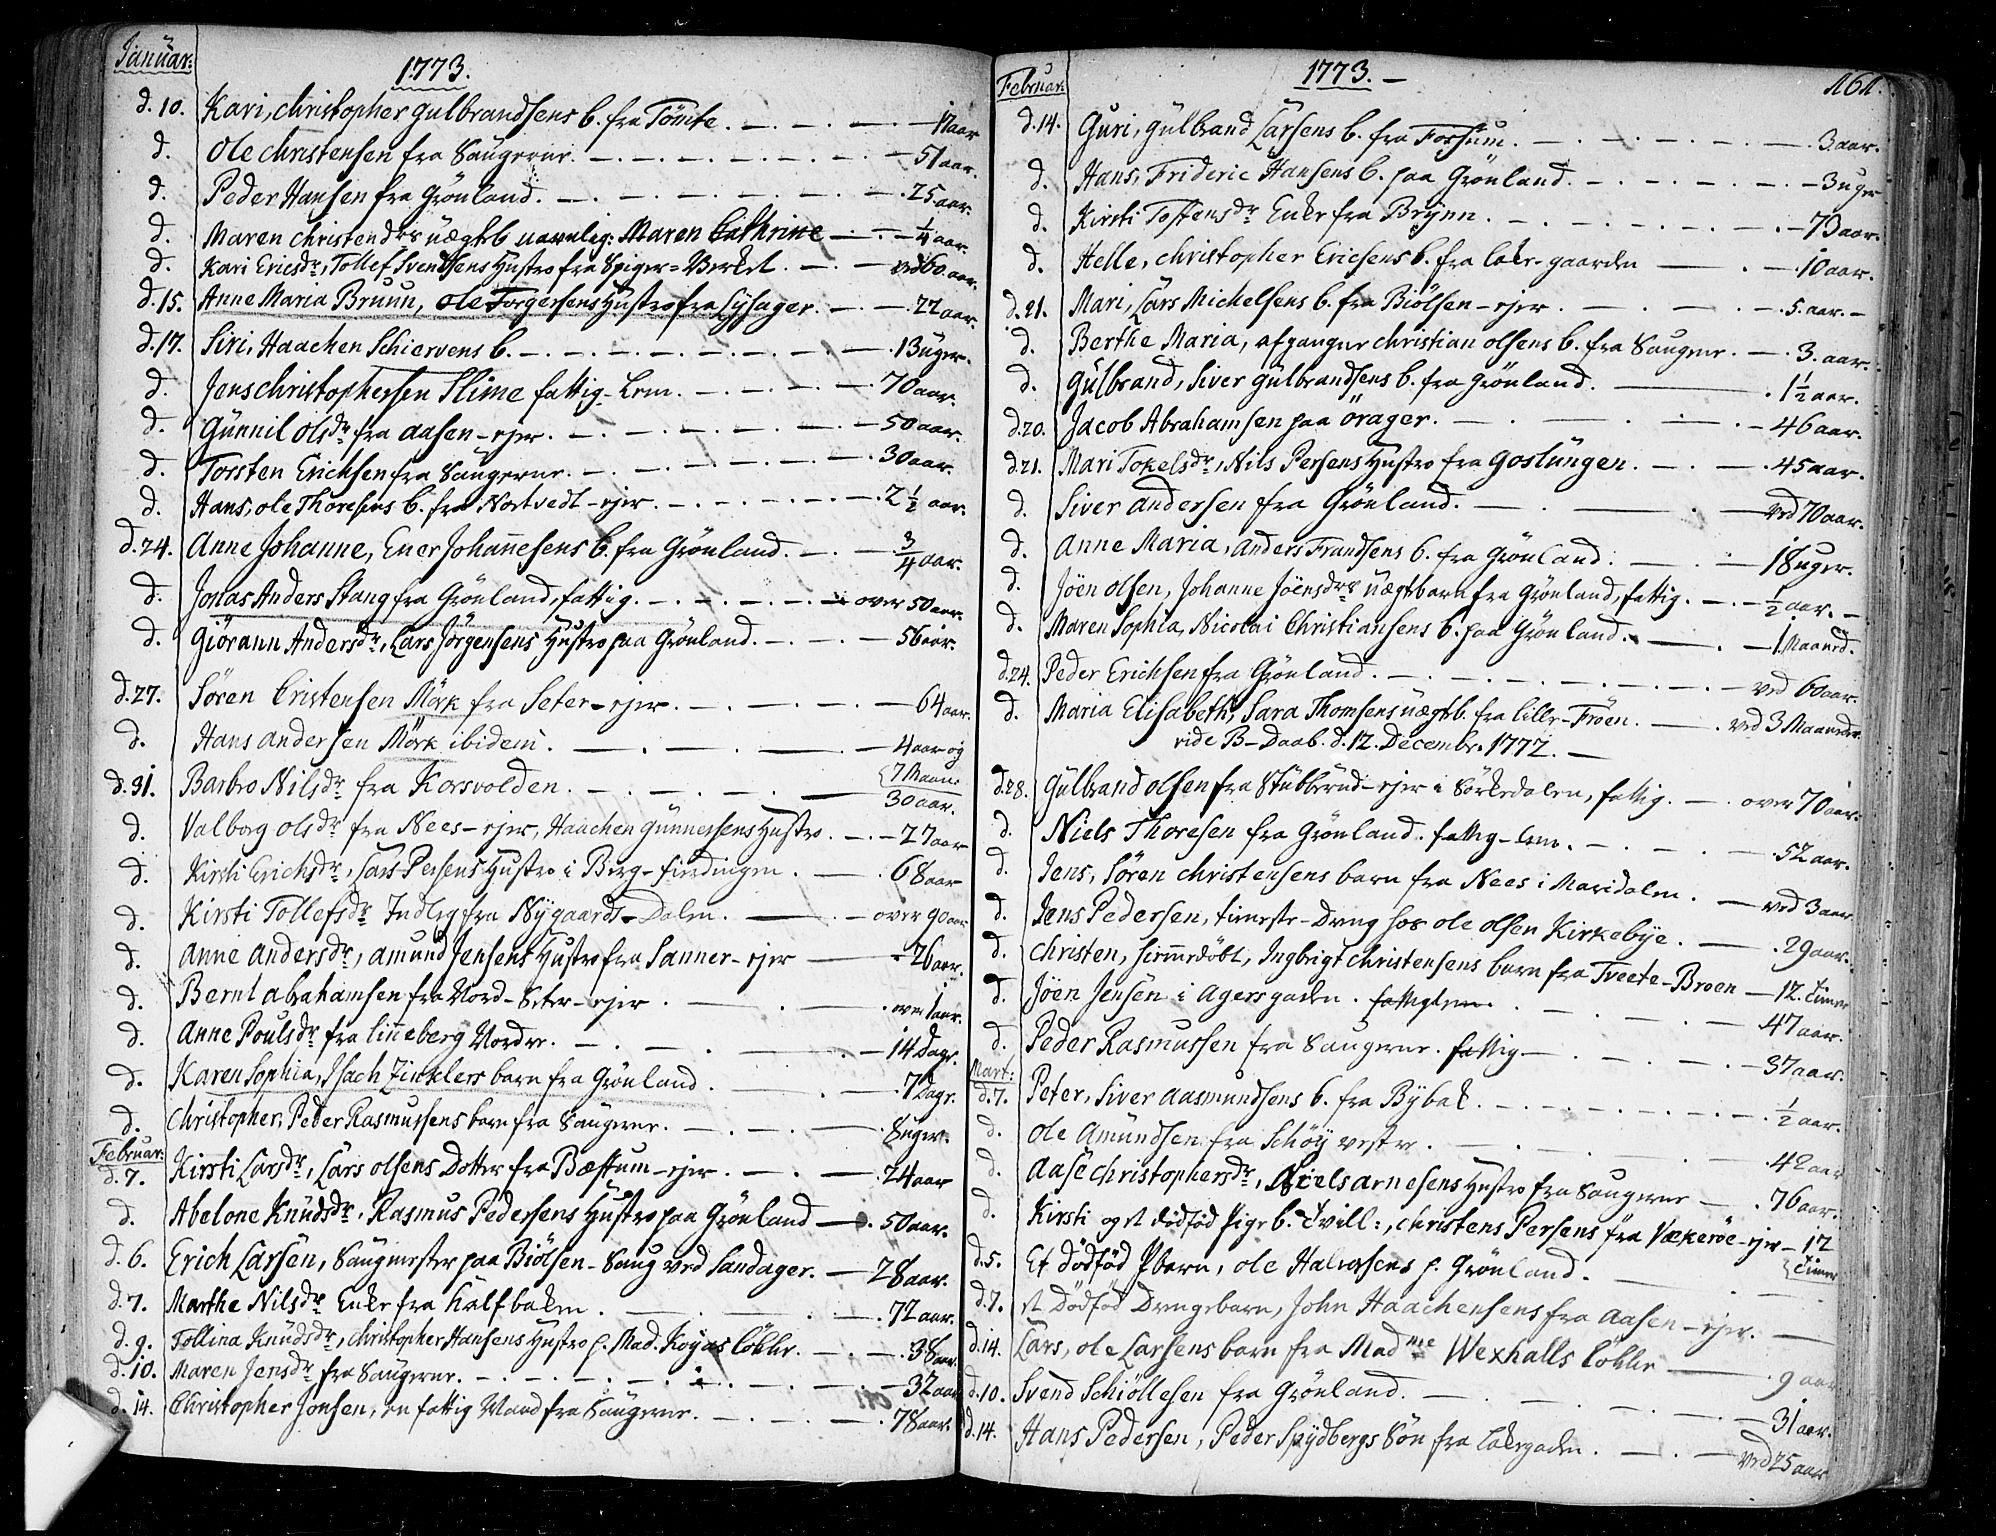 Januar:
1773.
d. 10. Kari, Christopher Gulbrandsens b. fra Tömte. 17 aar
d. Ole Christensen fra Saugerne. 51 aar.
d. Peder Hansen fra Grönland. 25 aar.
d. Maren Christendrs uægteb. navnlig: Maren Cathrine ¼ aar.
d. Kari Ericsdr, Tollef Svendsens Hustro fra Spiger=Verket. ved 60 aar.
d. 15. Anne Maria Bruun, Ole Torgersens Hustro fra Lysager. 22 aar.
d. 17. Siri, Haachen Schiervens b. 13 uger.
d. Jens Christophersen Slime fattig-Lem. 70 aar.
d. Gunnil Olsdr fra Aasen-ejer. 50 aar.
d. Torsten Erichsen fra Saugerne. 30 aar.
d. Hans, Ole Thoresens b. fra Nortvedt-ejer. 2 ½ aar.
d. 24. Anne Johanne, Ener Johannesens b. fra Grönland. ¾ aar.
d. Jonas Anders Stang fra Grönland, fattig. over 50 aar.
d. Giörann Andersdr, Lars Jörgensens Hustro paa Grönland. 56 aar.
d. 27. Sören Cristensen Mörk fra Seter-ejer. 64 aar.
d. Hans Andersen Mörk ibidem. 4 aar og
7 Maan:
d. 31. Barbro Nilsdr fra Korsvolden. 30 aar.
d. Valborg Olsdr fra Nees-ejer, Haachen Gunnersens Hustro. 27 aar
d. Kirsti Erichsdr, Lars Persens Hustro i Berg-fierdingen. 68 aar
d. Kirsti Tollefsdr Indleg fra Nygaards-Dalen. over 90 aar
d. Anne Andersdr, Amund Jensens Hustro fra Sanner-ejer 26 aar.
d. Bernt Abrahamsen fra Nord-Seter-ejer. over 1 aar.
d. Anne Poulsdr fra Linneberg Nordre. 14 Dage.
d. Karen Sophia, Isach Zinklers barn fra Grönland. 7 Dage.
d. Christopher, Peder Rasmussens barn fra Saugerne. 8 uger.
Februar:
d. 7. Kirsti Larsdr, Lars Olsens Dotter fra Bæstum-ejer. 24 aar
d. Abelone Knudsdr, Rasmus Pedersens Hustro paa Grönland 50 aar.
d. 6. Erich Larsen, Saugmester paa Biölsen-Saug ved Sandager. 28 aar.
d. 7. Marthe Nilsdr Enke fra Kalfbaken. 72 aar.
d. 9. Tollina Knudsdr, Christopher Hansens Hustro p. Mad. Koyas lökke. 38 aar
d. 10. Maren Jensdr fra Saugerne. 32 aar
d. 14. Christopher Jonsen, en fattig Mand fra Saugerne. 78 aar.
Februar:
1773.
161.
d. 14. Guri, Gulbrand Larsens b. fra Fossum. 3 aar.
d. Hans, Frideric Hansens b. paa Grönland. 3 uger
d. Kirsti Tostensdr Enke fra Brynn. 73 aar.
d. Helle, Christopher Ericsens b. fra Laker-gaarden 10 aar.
d. 21. Mari, Lars Michelsens b. fra Biölsen-ejer. 5. aar.
d. Berthe Maria, afgangne Christian Olsens b. fra Saugene. 3. aar.
d. Gulbrand, Siver Gulbrandsens b. fra Grönland. 1½ aar.
d. 20. Jacob Abrahamsen paa Örager. 46 aar.
d. 21. Mari Tokelsdr, Nils Persens Hustro fra Goslungen. 45 aar.
d. Siver Andersen fra Grönland. ved 70 aar.
d. Anne Maria, Anders Frandsens b. fra Grönland. 18 uger.
d. Jöen Olsen, Johanne Jöensdrs uægtbarn fra Grönland, fattig. ½ aar.
d. Maren Sophia, Nicolai Christiansens b. paa Grönland. 1 Maaned.
d. 24. Peder Erichsen fra Grönland. ved 60 aar.
d. Maria Elisabeth, Sara Thomsens uægteb. fra Lille-Fröen. ved 3 Maaneder.
vide B-Daab. d. 12. Decembr. 1772.
d. 28. Gulbrand Olsen fra Stubberud-ejer i Sörkedalen, fattig. over 70 aar.
d. Niels Thoresen fra Grönland. fattig-lem. 52 aar.
d. Jens, Sören Christensens barn fra Nees i Maridalen. ved 3 aar.
d. Jens Pedersen, tieneste-Dreng hos Ole Olsen Kirkebye. 29 aar.
d. Christen, hiemmedöbt, Ingbrigt Christensens barn fra Tveete-Broen 12. timer
d. Jöen Jensen i Agersgaden. fattiglem. 47 aar.
d. Peder Rasmussen fra Saugerne. fattig 37 aar.
Mart:
d. 7. Peter, Siver Aasmundsens b. fra Bybak. ½ aar.
d. Ole Amundsen fra Schöy vestre. 42 aar
d. Aase Christophersdr, Nielsarnesens Hustro fra Saugerne 76 aar.
d. Kirsti og et dödfödt Pige b. Tvill:, Christens Persens fra Vækeröe-ejer 12
timer
d. 5. Et Dödföd P barn, Ole Halvorsens p. Grönland.
d. 7. et Dödföd Drengebarn, John Haachensens fra Aasen-ejer.
d. 14. Lars, Ole Larsens barn fra Madme Wexhalls lökke 9 aar
d. 10. Svend Schiöllesen fra Grönland. 31 aar.
d. 14. Hans Pedersen, Peder Spydbergs Sön fra Lakegaden. ved 25 aar